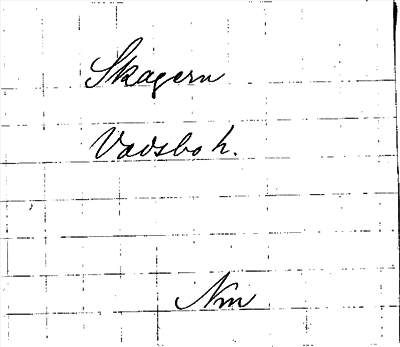 Skagern
Vadsbo h.
Nm